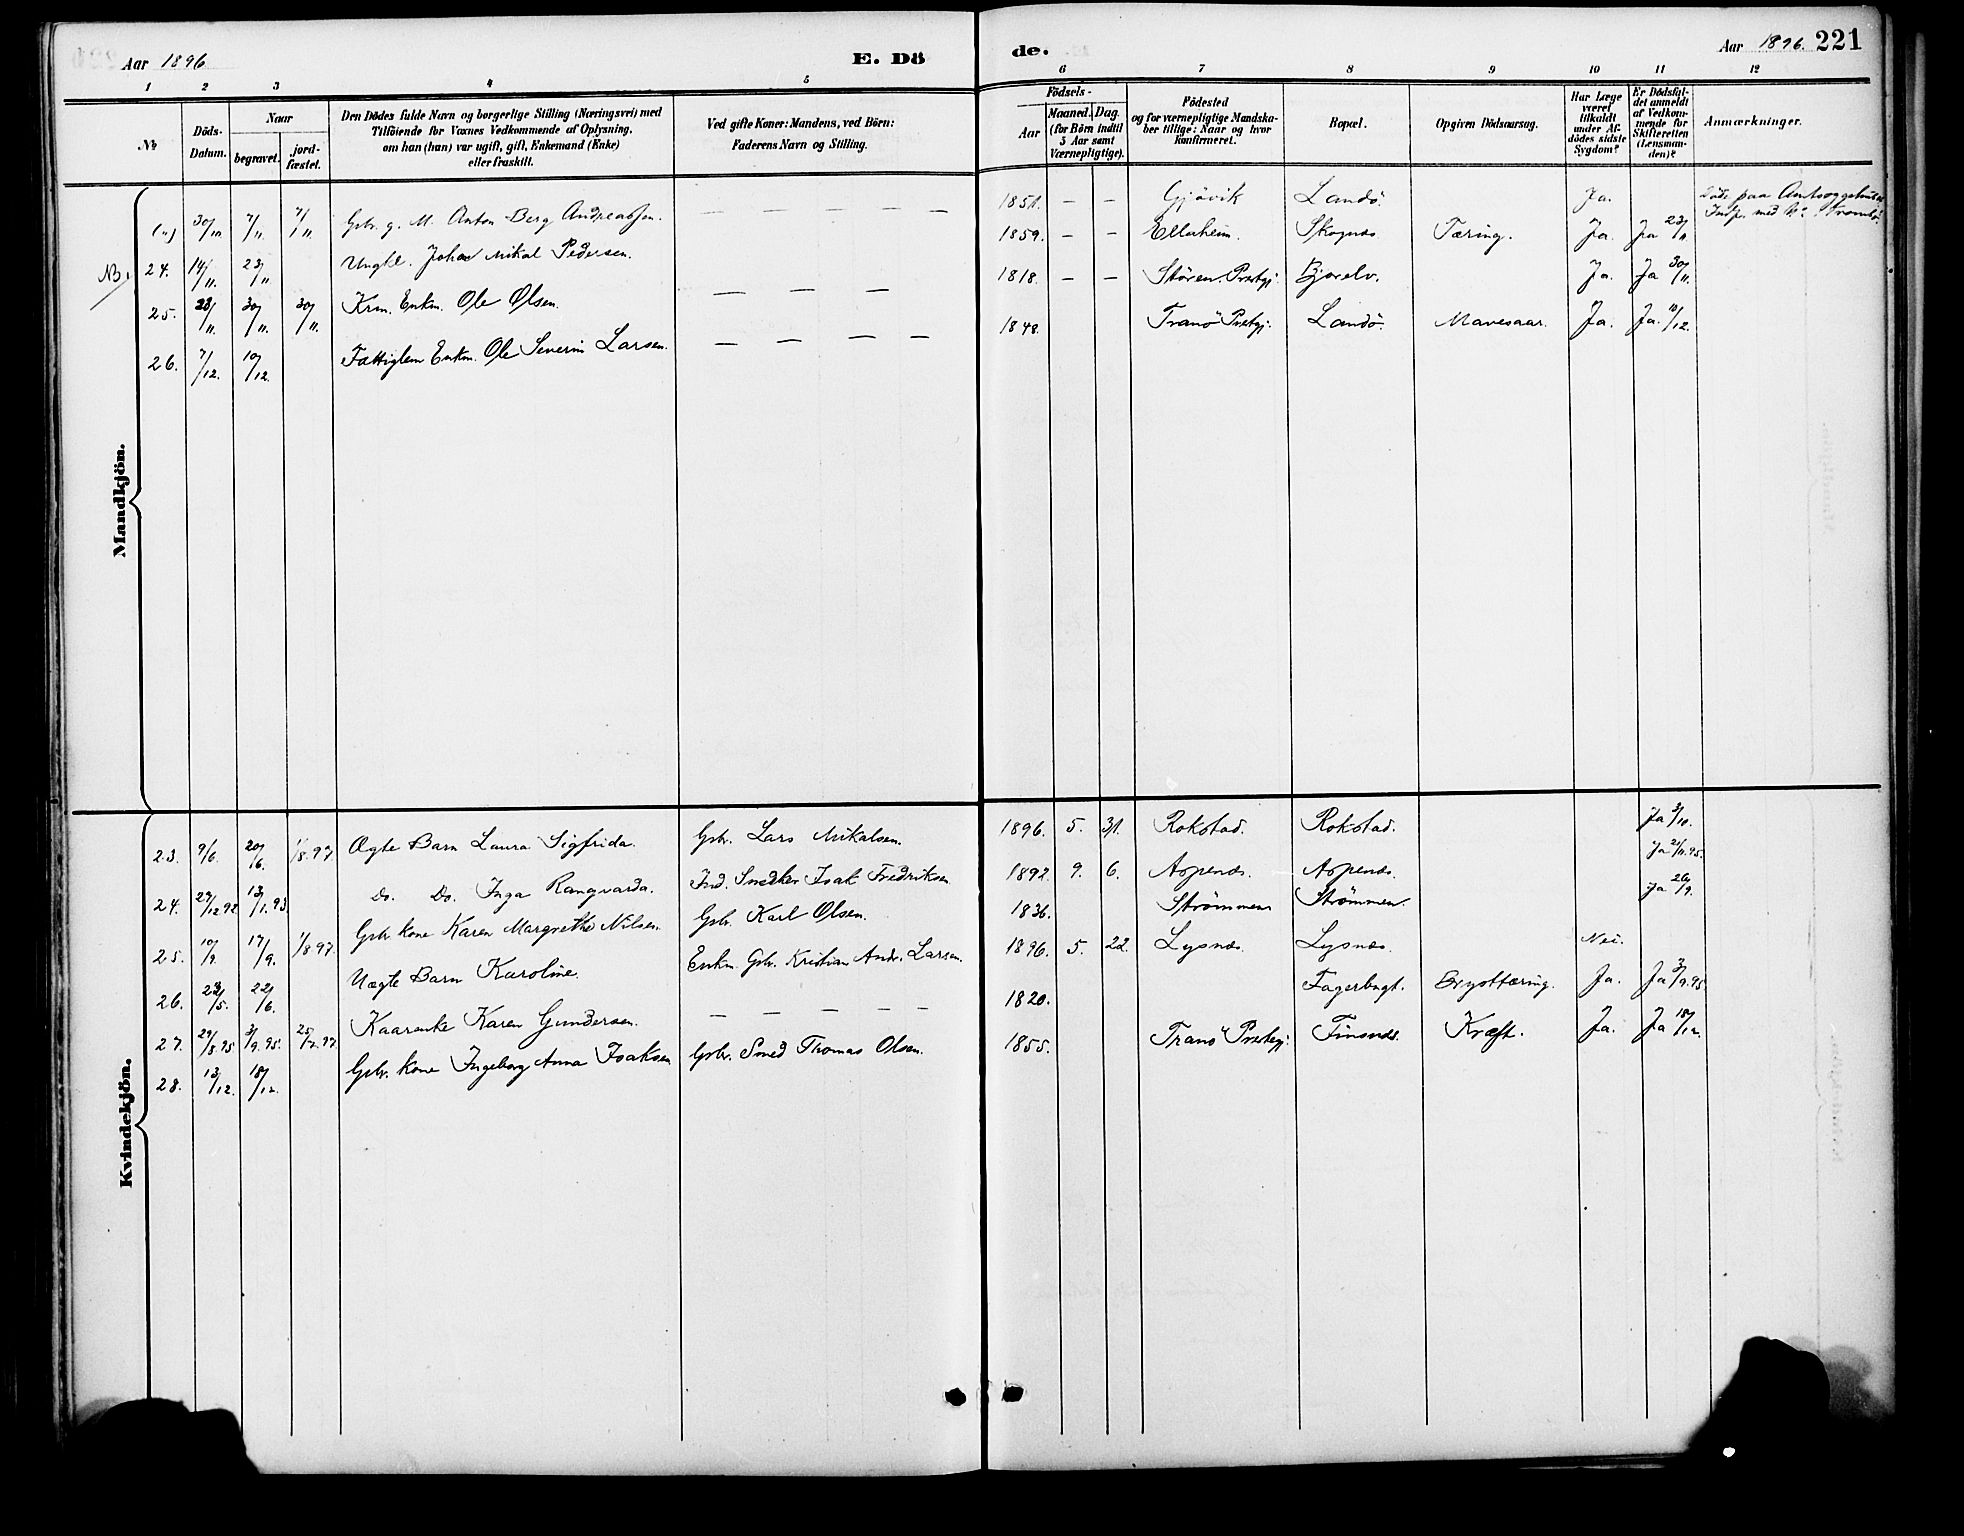 Aar 1896
E. Dö
de.
Aar 1896. 221
1 2 3 4 5 6 7 8 9 10 11 12
No
Döds-Datum.
Naar
begravet.
jord-fæstet.
Den Dödes fulde Navn og borgerlige Stilling (Næringsvei) med
Tilföiende for Voxnes Vedkommende af Oplysning,
om han (hun) var ugift, gift, Enkemand (Enke)
eller fraskilt.
Ved gifte Koner: Mandens, ved Börn:
Faderens Navn og Stilling.
Födsels-
Aar
Maaned. Dag.
(for Börn indtil
5 Aar samt
Værnepligtige).
Födested
og for værnepligtige Mandska-
ber tillige: Naar og hvor
konfirmeret.
Bopæl.
Opgiven Dödsaarsag.
Har Læge
været
tilkaldt
under Af-
dödes sidste
Sygdom?
Er Dödsfal-
det anmeldt
af Vedkom-
mende for
Skifteretten
(Lensman-
den)?
Anmærkninger.
Mandkjön.
(") 30/10 7/11. 7/11. Gbr. g. M. Anton Berg Andreassen. — — — — — 1851. — — Gjövik Landö. Ja. Döde paa
NB. 24. 14/11. 23/11 Ungkl. Johan Mikal Pedersen. 1859. — — Ellerheim. Skognæs Tæring. Ja. Ja 23/11.
25. 28/11. 30/11. 30/11. Krm. Enkm. Ole Olsen. — — — 1818. — — Stören Prstgj. Bjorelv. Ja. Ja 30/11.
26. 7/12. 10/12. Fattiglem Enkm. Ole Severin Larsen. — — — — 1848. Tranö Prstgj. Landö. Mavesaar. Ja. Ja. 10/12.
Kvindekjön.
23. 9/6. 20/6. 1/8.97. Ægte Barn Laura Sigfrida. Gbr. Lars Mikalsen. 1896. 5. 31. Rokstad. Rokstad. Ja 3/10.
24. 29/12 92. 13/1. 93. Do. Do. Inga Rangvarda. Ind. Snedker Isak Fredriksen 1892. 9. 6. Aspenes. Aspenes. Ja 21/11.95.
25. 10/9. 17/9. 1/8 97. Gbr. kone Karen Margrethe Nilsen. Gbr. Karl Olsen. 1836. Strömmen Strömmen. Ja 26/9.
26. 22/6. Uægte Barn Karoline. Enkm. Gbr. Kristian Andr. Larsen. 1896. 5. 22. Lysnæs. Lysnæs. Nei.
27. 29/8.95 3/9.95. Kaarenke Karen Gundersen. — — — — — 1820. Fagerbugt. Brysttæring. Ja. Ja 3/9.95.
28. 13/12. 18/12. Gbr. kone Ingeborg Anna Isaksen Gbr. Smed Thomas Olsen. 1855. Tranö Prstgj. Finsnes. Kræft. Ja. Ja 18/12.